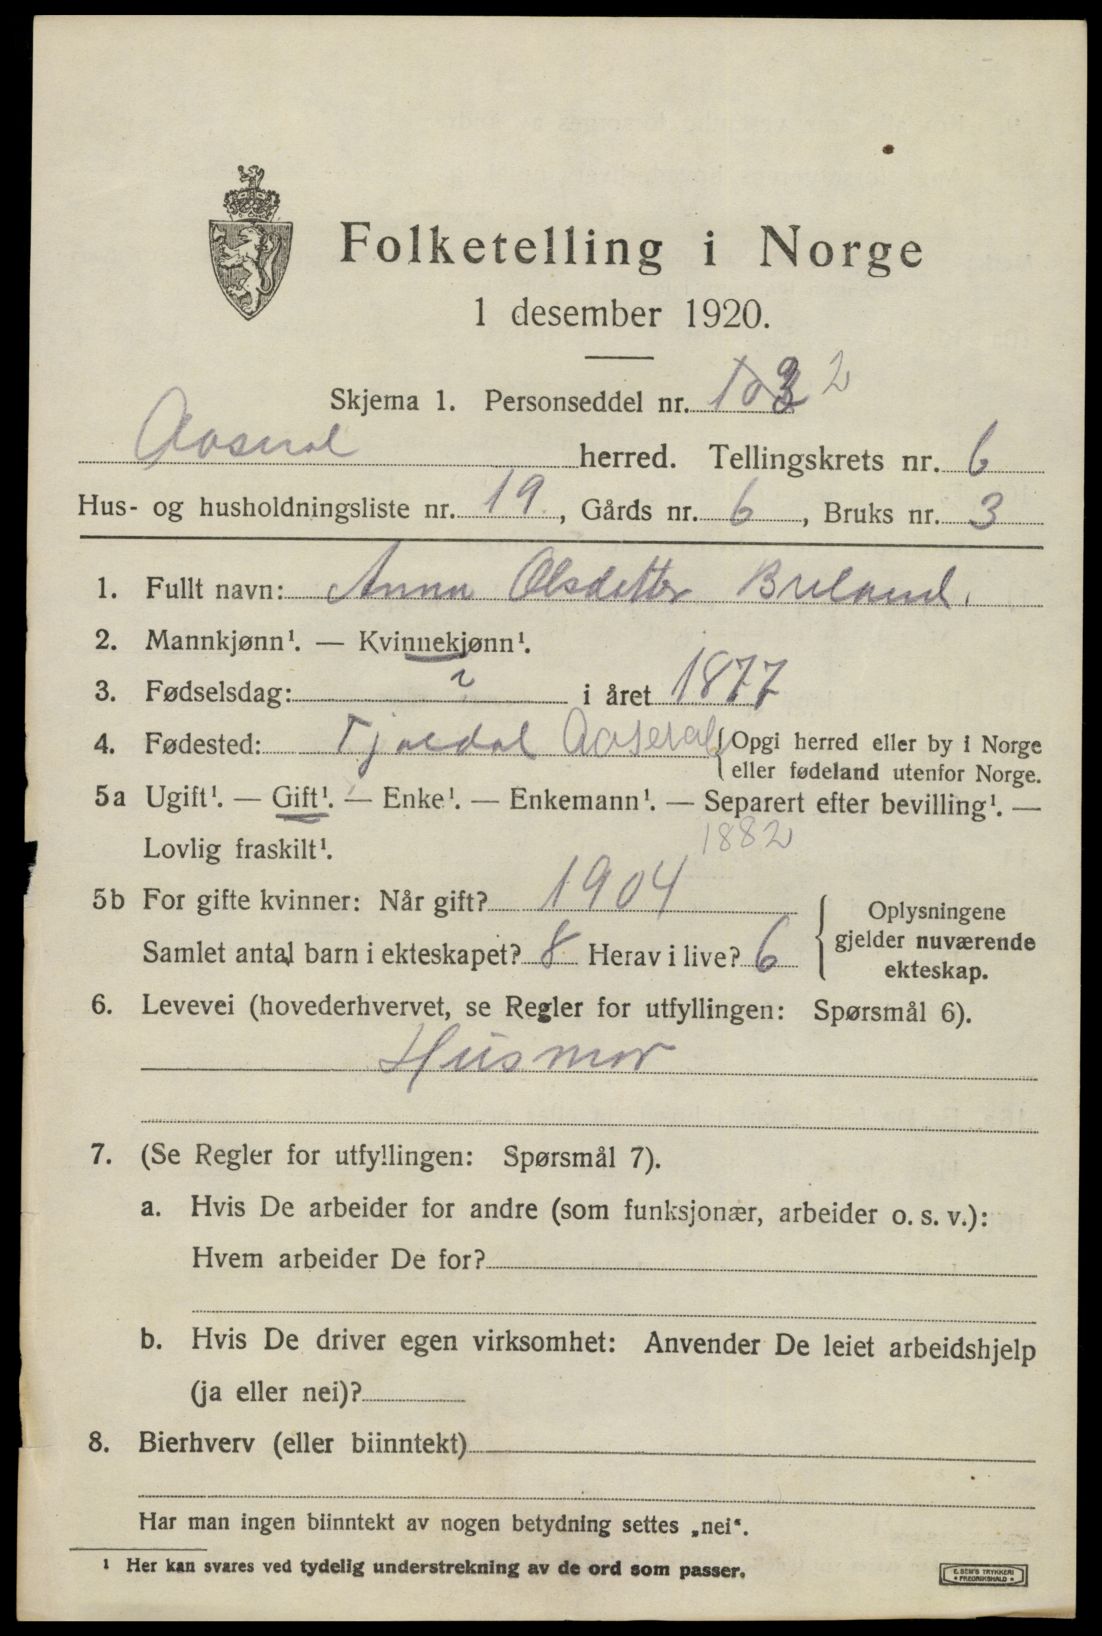 Folketelling i Norge
1 desember 1920.
Skjema 1. Personseddel nr. 2
Aaseral herred. Tellingskrets nr. 6
Hus- og husholdningsliste nr. 19, Gårds nr. 6, Bruks nr. 3
1. Fullt navn: Anna Olsdatter Breland.
2. Mannkjønn¹. — Kvinnekjønn¹.
3. Fødselsdag: ? i året 1877
4. Fødested: Aaseral {Opgi herred eller by i Norge
eller fødeland utenfor Norge.
5a Ugift¹. — Gift¹. — Enke¹. — Enkemann¹. — Separert efter bevilling¹. —
Lovlig fraskilt¹. 1882
5b For gifte kvinner: Når gift? 1904
Samlet antal barn i ekteskapet? 8 Herav i live? 6
Oplysningene
gjelder nuværende
ekteskap.
6. Levevei (hovederhvervet, se Regler for utfyllingen: Spørsmål 6).
Husmor
7. (Se Regler for utfyllingen: Spørsmål 7).
a. Hvis De arbeider for andre (som funksjonær, arbeider o. s. v.):
Hvem arbeider De for?
b. Hvis De driver egen virksomhet: Anvender De leiet arbeidshjelp
(ja eller nei)?
8. Bierhverv (eller biinntekt)
Har man ingen biinntekt av nogen betydning settes „nei“.
¹ Her kan svares ved tydelig understrekning av de ord som passer.
E. SEM'S TRYKKERI
• FREDRIKSHALD •